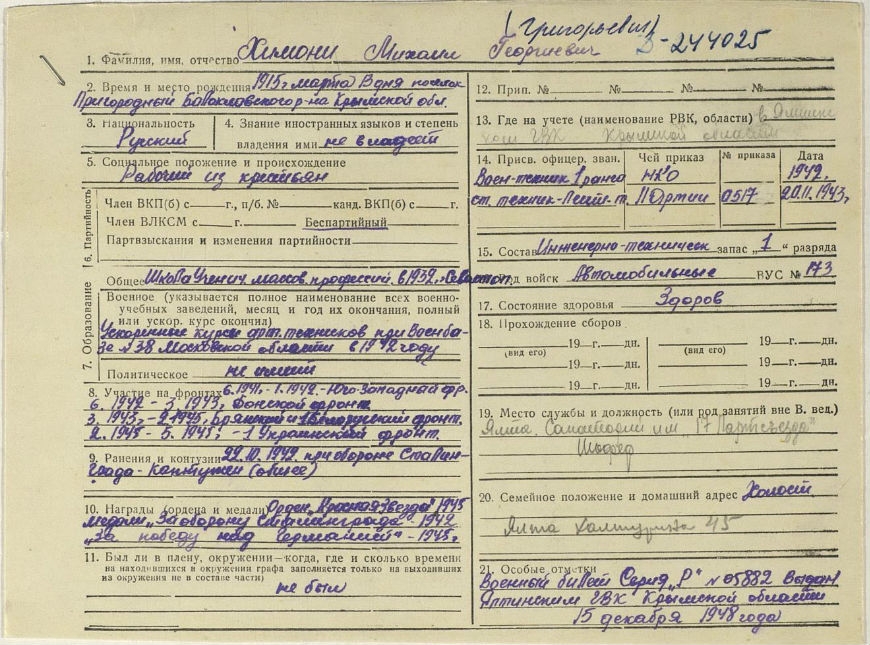 (Григорьевич)
З-244025
1. Фамилия, имя, отчество Химони Михаил Георгиевич
2. Время и место рождения 1915 г. марта 8 дня поселок
Пригородный Балаклавского р-на Крымской обл.
3. Национальность
Русский
4. Знание иностранных языков и степень
владения ими не владеет
5. Социальное положение и происхождение
Рабочий из крестьян
6. Партийность
Член ВКП(б) с——г., п/б. №—— канд. ВКП(б) с——г.
Член ВЛКСМ с——г. Беспартийный
Партвзыскания и изменения партийности
7. Образование
Общее Школа Ученич. массов. профессий. в 1932 г.
Военное (указывается полное наименование всех военно-
учебных заведений, месяц и год их окончания, полный
или ускор. курс окончил)
Ускоренные курсы арт. техников при Военба-
зе № 38 Московской области в 1942 году
Политическое не имеет
8. Участие на фронтах 6.1941.-1.1942.-Юго-Западный фр.
6.1942 - 3.1943, Донской фронт.
3.1943,-2.1945, Брянский и 1 Белорусский фронт.
2.1945 - 5.1945,-1 Украинский фронт.
9. Ранения и контузии 22.10.1942. при обороне Сталин-
града - Контужен (общее)
10. Награды (ордена и медали) Орден „Красная Звезда" 1945
медали „За оборону Сталинграда - 1942
„За победу над Германией" - 1945 г.
11. Был ли в плену, окружении—когда, где и сколько времени
на находившихся в окружении графа заполняется только на выходивших
из окружения не в составе части)
не был
12. Прип. №—— №—— №—— №——
13. Где на учете (наименование РВК, области) в Ялтинс
ком ГВК Крымской области
14. Присв. офицер. зван. Чей приказ № приказа Дата
Воен-техник 1 ранга НКО 1942.
ст. техник-лейт-т. 11 Армии 0517 20.11.1943,
15. Состав Инженерно-техническ запас „1" разряда
род войск Автомобильные ВУС № 173
17. Состояние здоровья Здоров
18. Прохождение сборов
19—г.—дн. 19—г.—дн.
(вид его) (вид его)
19—г.—дн. 19—г.—дн.
19—г.—дн. 19—г.—дн.
19. Место службы и должность (или род занятий вне В. вед.)
Ялта. Санаторий им „17 Партсъезда"
Шофер
20. Семейное положение и домашний адрес Холост.
Ялта Халтурина 45
21. Особые отметки
Военный билет Серия „Р" № 05882 Выдан
Ялтинским ГВК Крымской области
15 декабря 1948 года